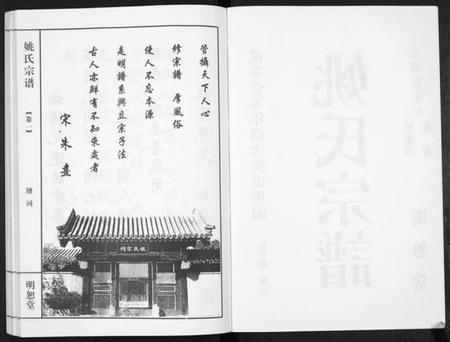 管攝天下人心
修宗譜 厚風俗
使人不忘本源
是明譜系興立宗子法
古人亦鮮有不知來處者
宋·朱熹
姚氏宗谱
【卷一】
题词
明恕堂
姚氏宗祠
姚氏宗譜
明恕堂